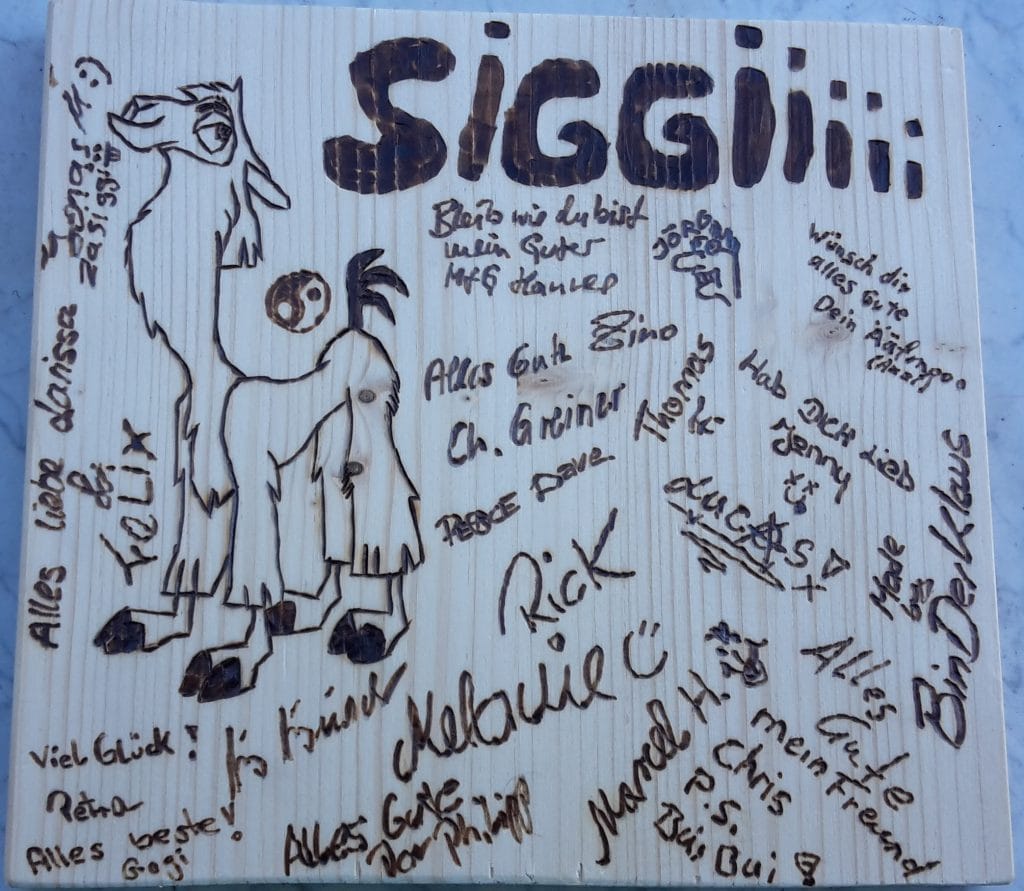 SiGGiiiiii
Bleib wie du bist
mein Guter
MfG Hannes
JÖRG
Wünsch dir
alles Gute
Dein
Jonas
Alles liebe Larissa
&
FeLiX
Alles Gute Zino
Ch. Greiner
PEACE Dave
Thomas
Hab DICH Lieb
Jenny
LUCAS
Rick
Melanie
BinDerKlaus
Viel Glück!
Petra
Alles beste!
Gogi
Alles Gute
Dar Philipp
Marcel H.
Alles Gute
mein Freund
Chris
P.S.
Bui Bui